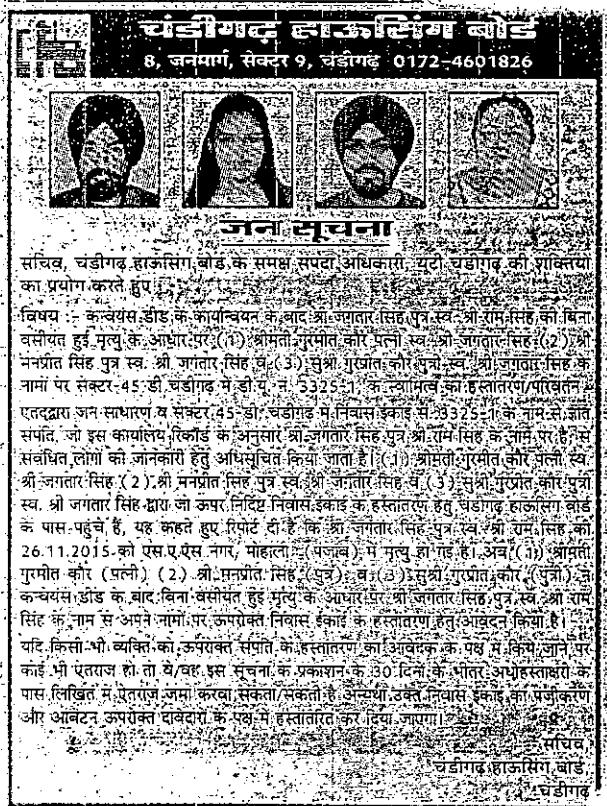 चंडीगढ़ हाऊसिंग बोर्ड
8, जनमार्ग, सेक्टर 9, चंडीगढ़ 0172-4601826
जन सूचना
सचिव, चंडीगढ़ हाऊसिंग बोर्ड के समक्ष संपदा अधिकारी, यूटी चंडीगढ़ की शक्तियों
का प्रयोग करते हुए।
विषय :- कन्वेयंस डीड के कार्यान्वयन के बाद श्री जगतार सिंह पुत्र स्व. श्री राम सिंह की बिना
वसीयत हुई मृत्यु के आधार पर (1) श्रीमती गुरमीत कौर पत्नी स्व. श्री जगतार सिंह (2) श्री
मनप्रीत सिंह पुत्र स्व. श्री जगतार सिंह व (3) सुश्री गुरप्रीत कौर पुत्री स्व. श्री जगतार सिंह के
नामों पर सेक्टर-45 डी चंडीगढ़ में डी.यू. नं. 3325-1, के स्वामित्व का हस्तांतरण/परिवर्तन -
एतद्द्वारा जन साधारण व सेक्टर 45-डी, चंडीगढ़ में निवास इकाई सं. 3325-1 के नाम से ज्ञात
संपत्ति, जो इस कार्यालय रिकॉर्ड के अनुसार श्री जगतार सिंह पुत्र श्री राम सिंह के नाम पर है, से
संबंधित लोगों को जानकारी हेतु अधिसूचित किया जाता है। (1) श्रीमती गुरमीत कौर पत्नी स्व.
श्री जगतार सिंह (2) श्री मनप्रीत सिंह पुत्र स्व. श्री जगतार सिंह व (3) सुश्री गुरप्रीत कौर पुत्री
स्व. श्री जगतार सिंह द्वारा जो ऊपर निर्दिष्ट निवास इकाई के हस्तांतरण हेतु चंडीगढ़ हाऊसिंग बोर्ड
के पास पहुंचे हैं, यह कहते हुए रिपोर्ट दी है कि श्री जगतार सिंह पुत्र स्व. श्री राम सिंह की
26.11.2015 को एस.ए.एस नगर, मोहाली (पंजाब) में मृत्यु हो गई है। अब (1) श्रीमती
गुरमीत कौर (पत्नी) (2) श्री मनप्रीत सिंह (पुत्र) व (3) सुश्री गुरप्रीत कौर (पुत्री) ने
कन्वेयंस डीड के बाद बिना वसीयत हुई मृत्यु के आधार पर श्री जगतार सिंह पुत्र स्व. श्री राम
सिंह के नाम से अपने नामों पर उपरोक्त निवास इकाई के हस्तांतरण हेतु आवेदन किया है।
यदि किसी भी व्यक्ति को उपरोक्त संपत्ति के हस्तांतरण का आवेदक के पक्ष में किये जाने पर
कोई भी ऐतराज हो तो वे/वह इस सूचना के प्रकाशन के 30 दिनों के भीतर अधोहस्ताक्षरी के
पास लिखित में ऐतराज जमा करवा सकता/सकती है अन्यथा उक्त निवास इकाई का पंजीकरण
और आबंटन उपरोक्त दावेदारों के पक्ष में हस्तांतरित कर दिया जाएगा।
सचिव,
चंडीगढ़ हाऊसिंग बोर्ड,
चंडीगढ़